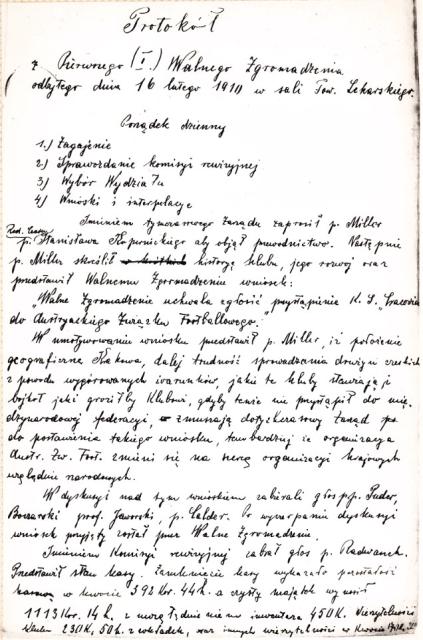 Protokół
z Pierwszego (I.) Walnego Zgromadzenia
odbytego dnia 16 lutego 1910 w sali Tow. Lekarskiego.
Porządek dzienny
1.) Zagajenie
2.) Sprawozdanie komisyi rewizyjnej
3.) Wybór Wydziału
4.) Wnioski i interpelacye
Imieniem tymczasowego Zarządu zaprosił p. Miller
p. Stanisława Kopernickiego aby objął przewodnictwo. Następnie
p. Miller skreślił historyę klubu, jego rozwój oraz
przedstawił Walnemu Zgromadzeniu wniosek:
"Walne Zgromadzenie uchwala zgłosić przystąpienie K. S. "Cracovia"
do Austryackiego Związku Footballowego."
W umotywowaniu wniosku przedstawił p. Miller, iż położenie
geograficzne Krakowa, dalej trudność sprowadzania drużyn czeskich
z powodu wygórowanych warunków, jakie te kluby stawiają i
bojkot jaki groziłby Klubowi, gdyby tenże nie przystąpił do mię-
dzynarodowej federacyi, zmuszają dotychczasowy Zarząd
do postawienia takiego wniosku, tembardziej że organizacya
Austr. Zw. Foot. zmieni się na szereg organizacyi krajowych
względnie narodowych.
W dyskusyi nad tym wnioskiem zabierali głos pp. Puder,
prof. Jaworski, p. Calder. Po wyczerpaniu dyskusyi
wniosek przyjęty został przez Walne Zgromadzenie.
Imieniem Komisyi rewizyjnej zabrał głos p. Radwanek.
Przedstawił stan kasy. Zamknięcie kasy wykazało pozostałość
w kwocie 392 Kor. 44 h. a czysty majątek wynosił
1113 Kor. 14 h. z uwzględnieniem inwentarza 450 K. Wierzytelności
Klubu 230 K, 50 h. z wkładek, oraz innych wierzytelności w kwocie